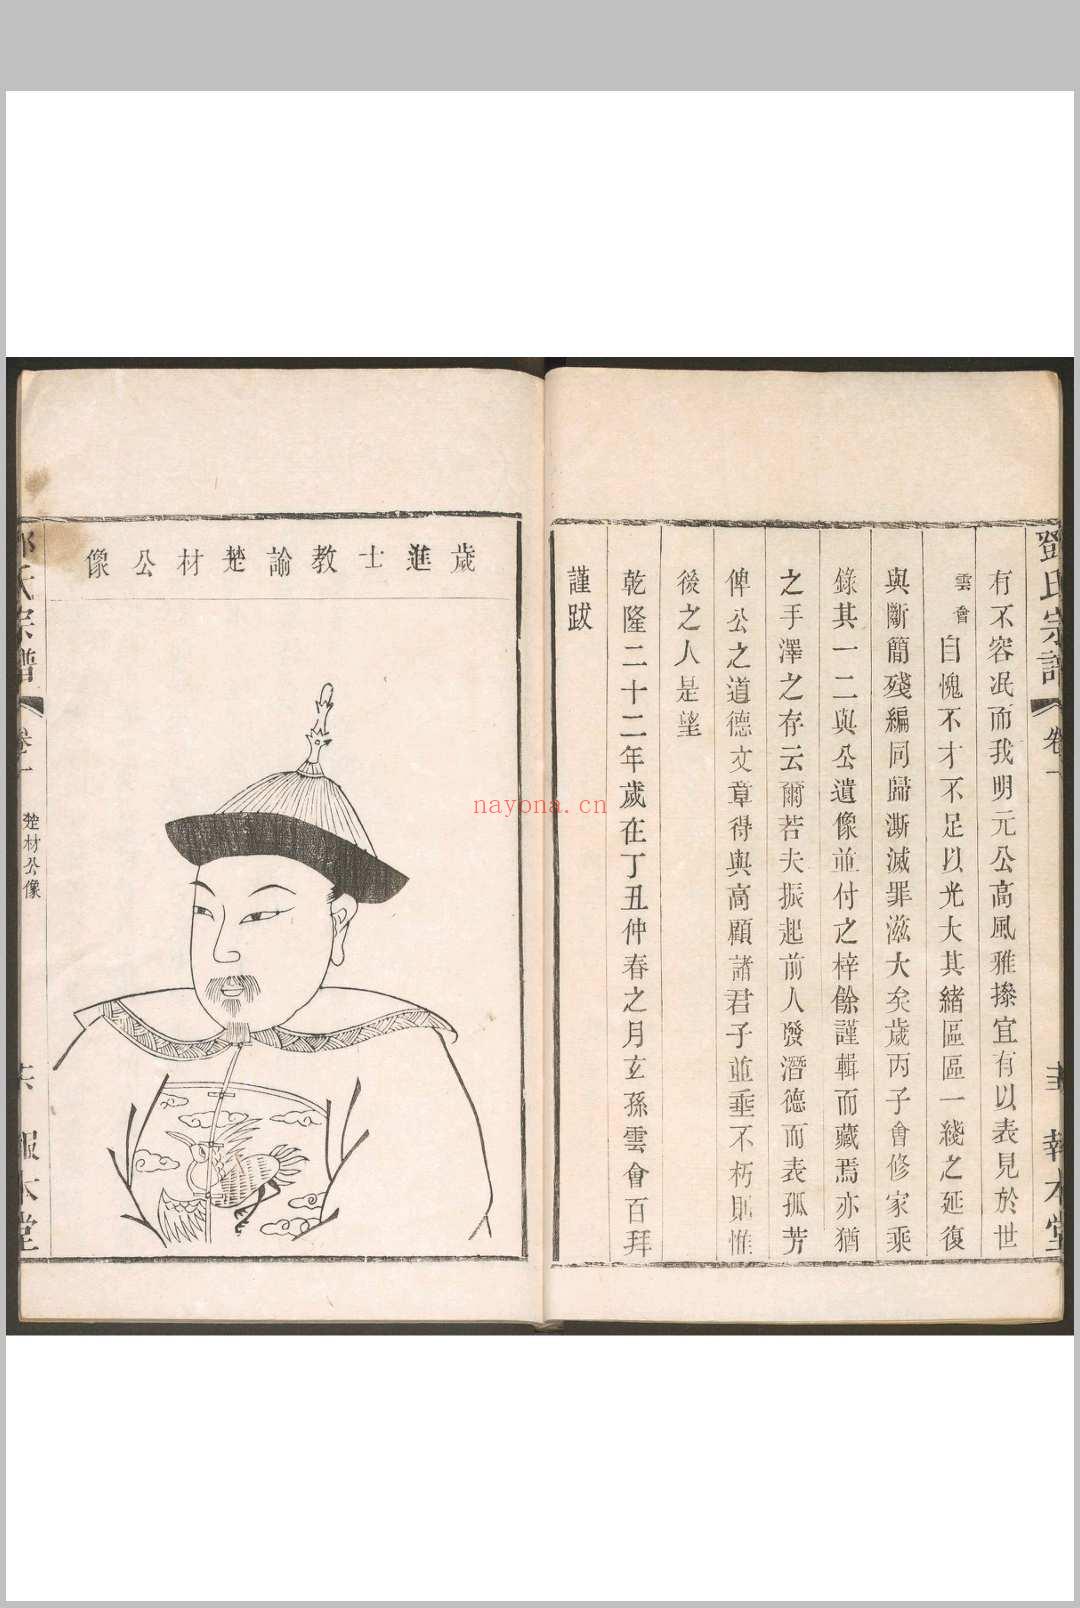 鄧氏宗譜
卷一
有不容泯而我明元公高風雅操宜有以表見於世
雲會自愧不才不足以光大其緒區區一綫之延復
與斷簡殘編同歸澌滅罪滋大矣歲丙子會修家乘
錄其一二與公遺像並付之梓餘謹輯而藏焉亦猶
之手澤之存云爾若夫振起前人發潛德而表孤芳
俾公之道德文章得與高顧諸君子並垂不朽則惟
後之人是望
乾隆二十二年歲在丁丑仲春之月玄孫雲會百拜
謹跋
歲進士教諭楚材公像
氏宗譜
卷一
楚材公像
報本堂
nayona.cn